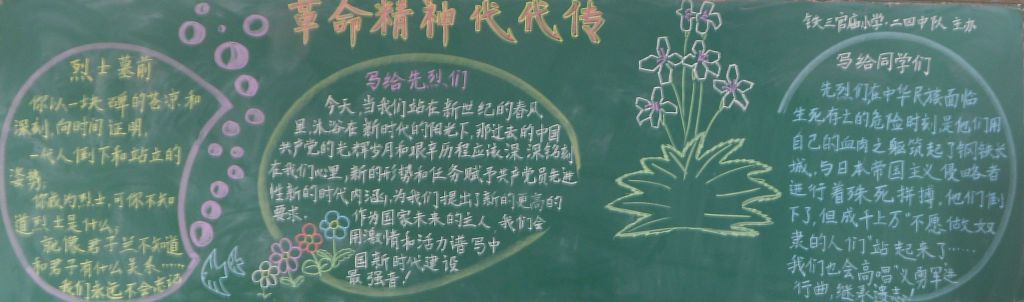 革命精神代代传
铁三官庙小学:二四中队 主办
烈士墓前
你以一块碑的苍凉和
深刻,向时间证明,
一代人倒下和站立的
姿势。
你成为烈士,可你不知
道烈士是什么,
就像君子兰不知道
和君子有什么关系……
我们永远不会忘记
写给先烈们
今天,当我们站在新世纪的春风
里,沐浴在新时代的阳光下,那过去的中国
共产党的光辉岁月和艰辛历程应该深深铭刻
在我们心里,新的形势和任务赋予共产党员先进
性新的时代内涵,为我们提出了新的更高的
要求。
作为国家未来的主人,我们会
用激情和活力谱写中
国新时代建设
最强音!
写给同学们
先烈们在中华民族面临
生死存亡的危险时刻是他们用
自己的血肉之躯筑起了钢铁长
城,与日本帝国主义侵略者
进行着殊死拼搏,他们倒
下了,但成千上万“不愿做奴
隶的人们”站起来了……
我们也会高唱“义勇军进
行曲,继承遗志!